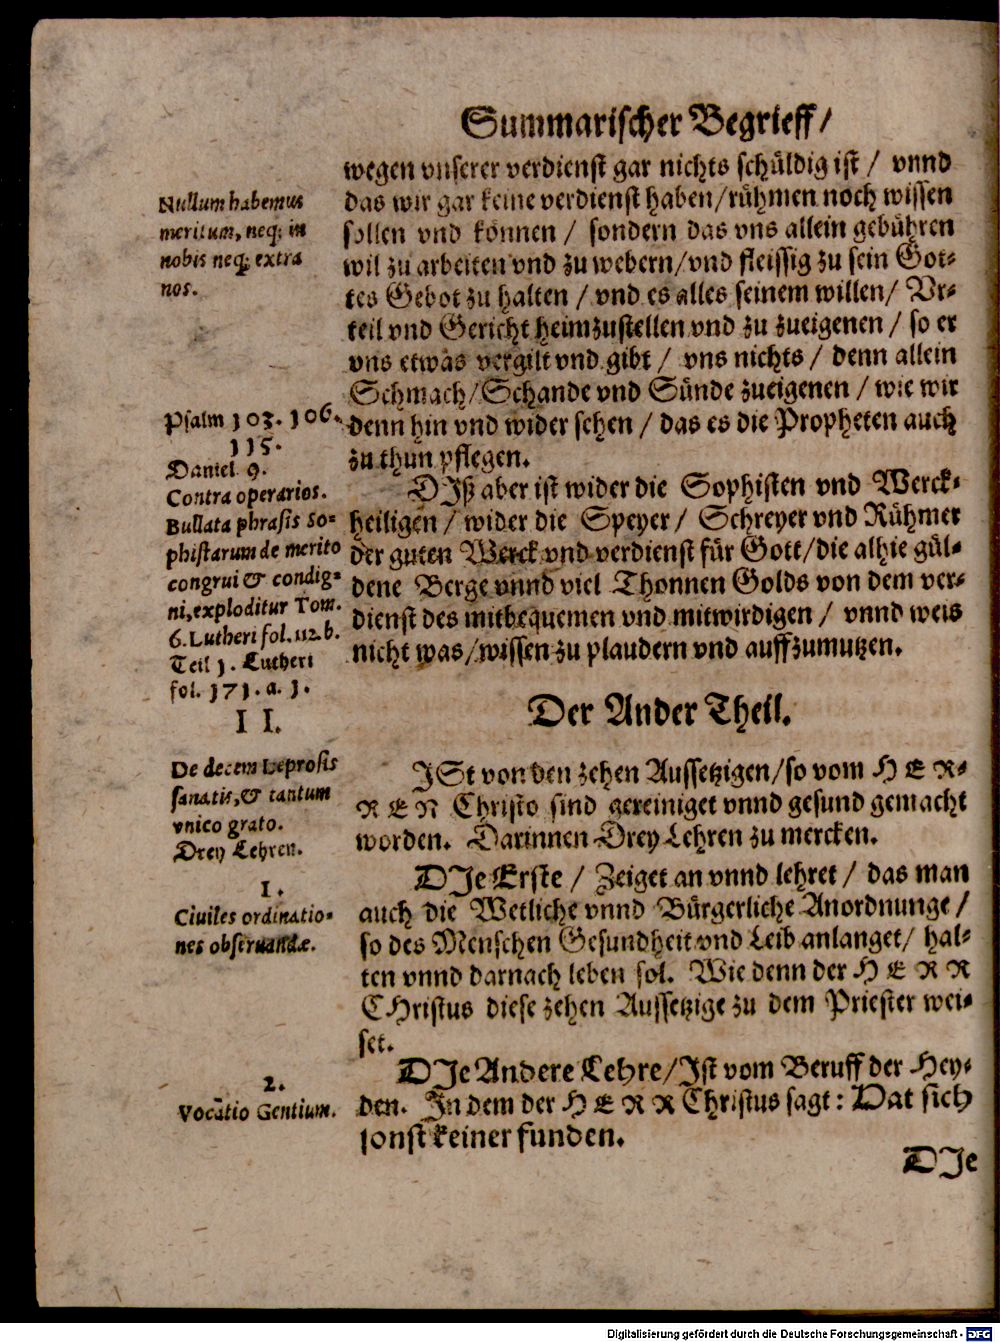 Summarischer Begrieff/
wegen vnserer verdienst gar nichts schüldig ist / vnnd
das wir gar keine verdienst haben/rühmen noch wissen
sollen vnd können / sondern das vns allein gebühren
wil zu arbeiten vnd zu webern/vnd fleissig zu sein Got-
tes Gebot zu halten / vnd es alles seinem willen/ Vr-
teil vnd Gericht heimzustellen vnd zu zueigenen / so er
vns etwas vergilt vnd gibt / vns nichts / denn allein
Schmach/Schande vnd Sünde zueigenen / wie wir
denn hin vnd wider sehen / das es die Propheten auch
zu thun pflegen.
Nullum habemus
meritum, neq; in
nobis neq; extra
nos.
Psalm 103. 106.
115.
Daniel 9.
DJß aber ist wider die Sophisten vnd Werck-
heiligen / wider die Speyer / Schreyer vnd Rühmer
der guten Werck vnd verdienst für Gott/die alhie gül-
dene Berge vnnd viel Thonnen Golds von dem ver-
dienst des mitbequemen vnd mitwirdigen / vnnd weis
nicht was/wissen zu plaudern vnd auffzumutzen.
Contra operarios.
Bullata phrasis So-
phistarum de merito
congrui & condig-
ni, exploditur Tom.
6. Lutheri fol. 112. b.
Teil 1. Lutheri
fol. 171. a. 1.
II.
Der Ander Theil.
JSt von den zehen Aussetzigen/so vom HER-
REN Christo sind gereiniget vnnd gesund gemacht
worden. Darinnen Drey Lehren zu mercken.
De decem Leprosis
sanatis, & tantum
vnico grato.
Drey Lehren.
DJe Erste / Zeiget an vnnd lehret / das man
auch die Wetliche vnnd Bürgerliche Anordnunge /
so des Menschen Gesundheit vnd Leib anlanget/ hal-
ten vnnd darnach leben sol. Wie denn der HERR
CHristus diese zehen Aussetzige zu dem Priester wei-
set.
1.
Ciuiles ordinatio-
nes obseruandæ.
DJe Andere Lehre/Jst vom Beruff der Hey-
den. Jn dem der HERR Christus sagt: Dat sich
sonst keiner funden.
2.
Vocatio Gentium.
DJe
Digitalisierung gefördert durch die Deutsche Forschungsgemeinschaft - DFG